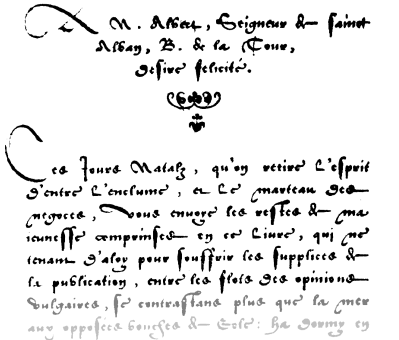 A N. Albert, Seigneur de sainct
Alban, B. de la Cour,
desire felicité.
Ces Jours Natalz, qu'on retire l'esprit
d'entre l'enclume, et le marteau des
negoces, Vous envoye les restes de ma
ieunesse comprinses en ce livre, qui ne
tenant d'aloy pour souffrir les supplices de
la publication, entre les flots des opinions
vulgaires, se contrastans plus que la mer
aux opposées bouches de Eole: ha dormy en